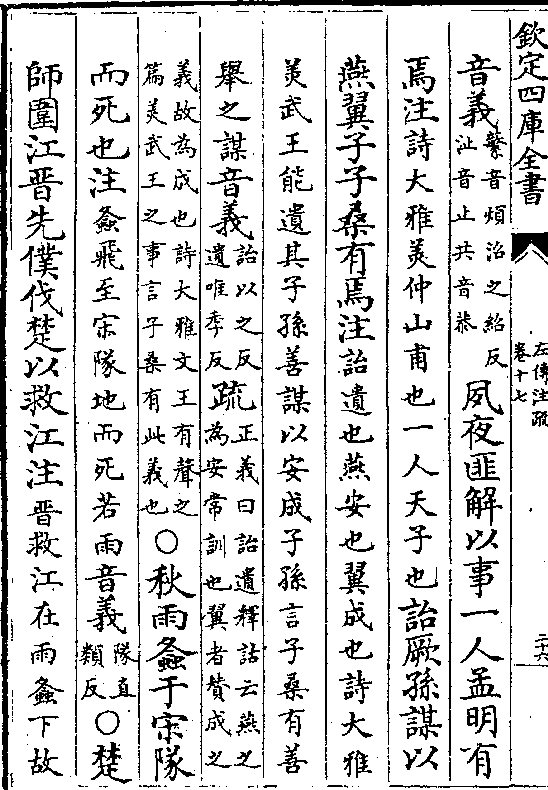 欽定四庫全書
左傳注疏
卷十七
二十六
音義繁音煩沼之紹反
沚音止共音恭夙夜匪解以事一人孟明有
焉注詩大雅美仲山甫也一人天子也詒厥孫謀以
燕翼子子桑有焉注詒遺也燕安也翼成也詩大雅
美武王能遺其子孫善謀以安成子孫言子桑有善
舉之謀音義詒以之反
遺唯季反疏正義曰詒遺釋詁云燕之
為安常訓也翼者贊成之
義故為成也詩大雅文王有聲之
篇美武王之事言子桑有此義也○秋雨螽于宋隊
而死也注螽飛至宋隊地而死若雨音義隊直
類反○楚
師圍江晋先僕伐楚以救江注晋救江在雨螽下故